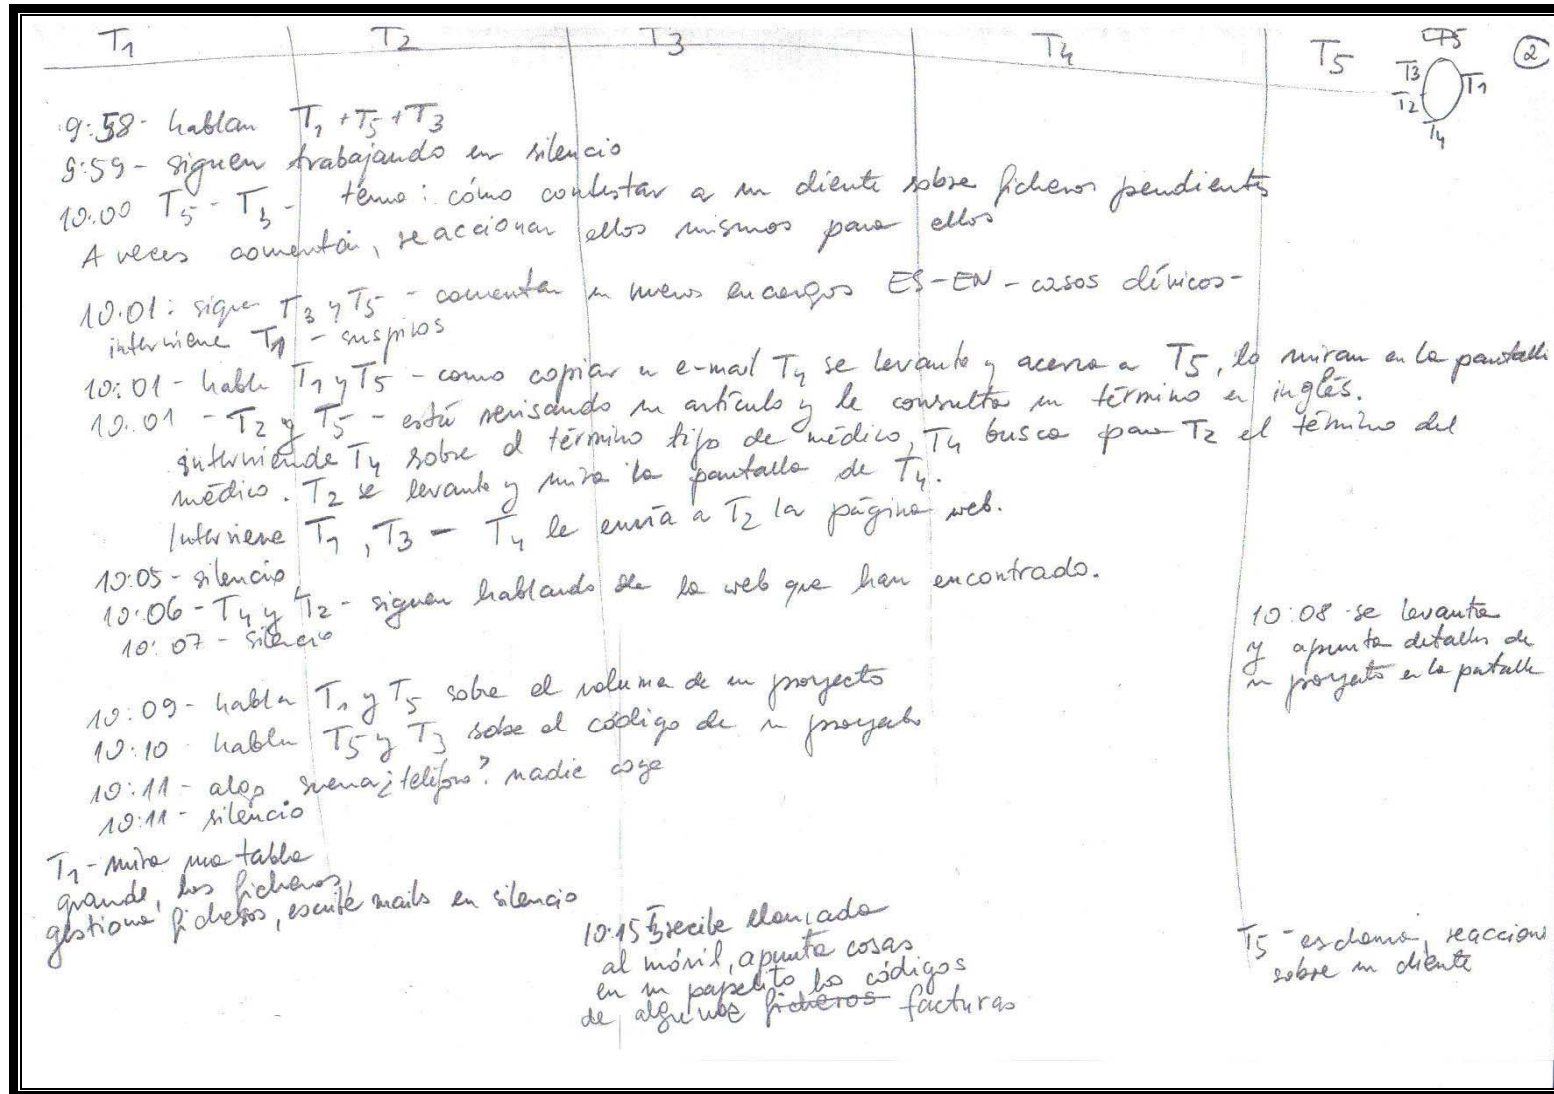 T1 T2 T3 T4 T5
T5
T3 T1
T2
T4
2
9:58- hablan T1 + T5 + T3
9:59 - siguen trabajando en silencio
10:00 T5 - T3 - tema: cómo contestar a un cliente sobre ficheros pendientes
A veces comentan, reaccionan ellos mismos para ellos
10:01: sigue T3 y T5 - comentan un nuevos encargos ES-EN - casos clínicos-
interviene T1 - suspiros
10:01 - habla T1 y T5 - como copiar un e-mail T4 se levanta y acerca a T5, lo miran en la pantalla
10:01 - T2 y T5 - está revisando un artículo y le consulta un término en inglés.
interviende T4 sobre el término tipo de médico, T4 busca para T2 el término del
médico. T2 se levanta y mira la pantalla de T4.
Interviene T1, T3 - T4 le envía a T2 la página web.
10:05 - silencio
10:06 - T4 y T2 - siguen hablando de la web que han encontrado.
10:07 - silencio
10:08 - se levanta
y apunta detalles de
un proyecto en la patalla
10:09 - habla T1 y T5 sobre el volumen de un proyecto
10:10 - hablan T5 y T3 sobre el código de un proyecto
10:11 - algo suena ¿teléfono? nadie coge
10:11 - silencio
T1 - mira una tabla
grande, los ficheros,
gestiona ficheros, escribe mails en silencio
10:15 T3 recibe llamada
al móvil, apunta cosas
en un papelito los códigos
de algunas ficheros facturas
T5 - exclama, reacciona
sobre un cliente